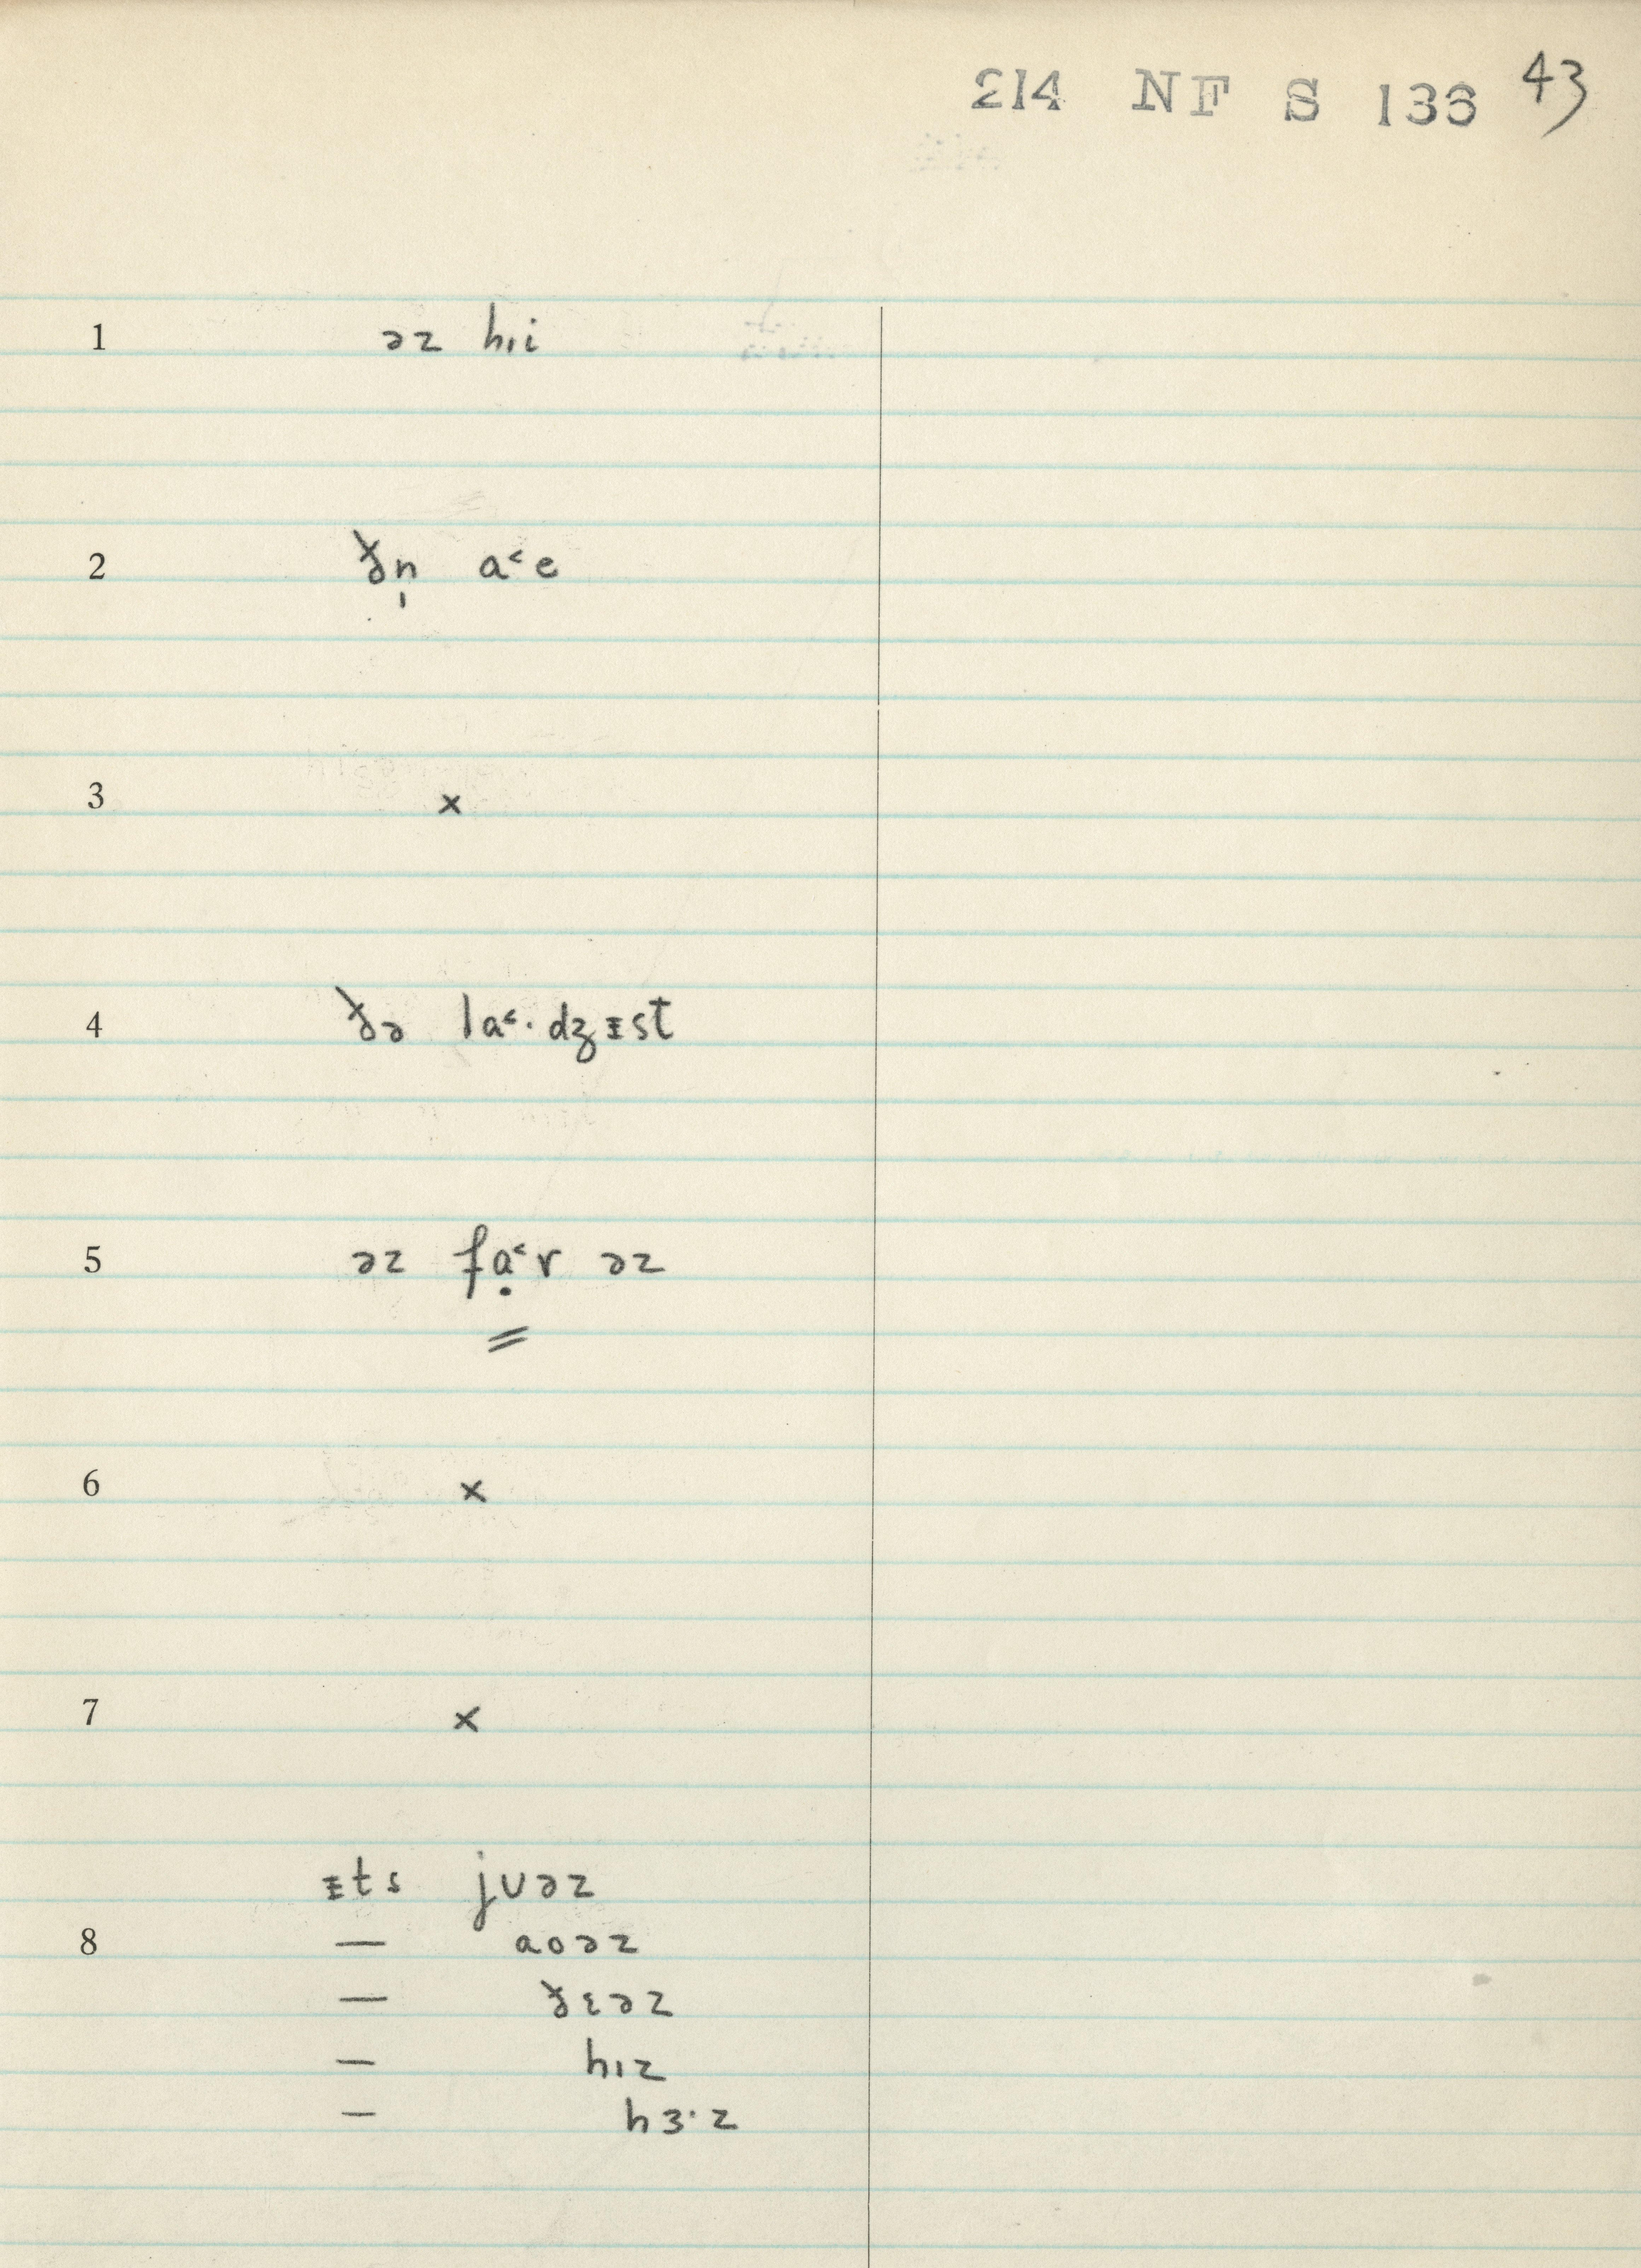 214 NF S 136 43
1 əz hɪi
2 ðn̩ a˂e
3 x
4 ðə la˂·dʒᵻst
5 əz fạ˂r əz
=
6 x
7 x
ᵻts jʊəz
8 — aoəz
— ðɛəz
— hɪz
— hɜ·z